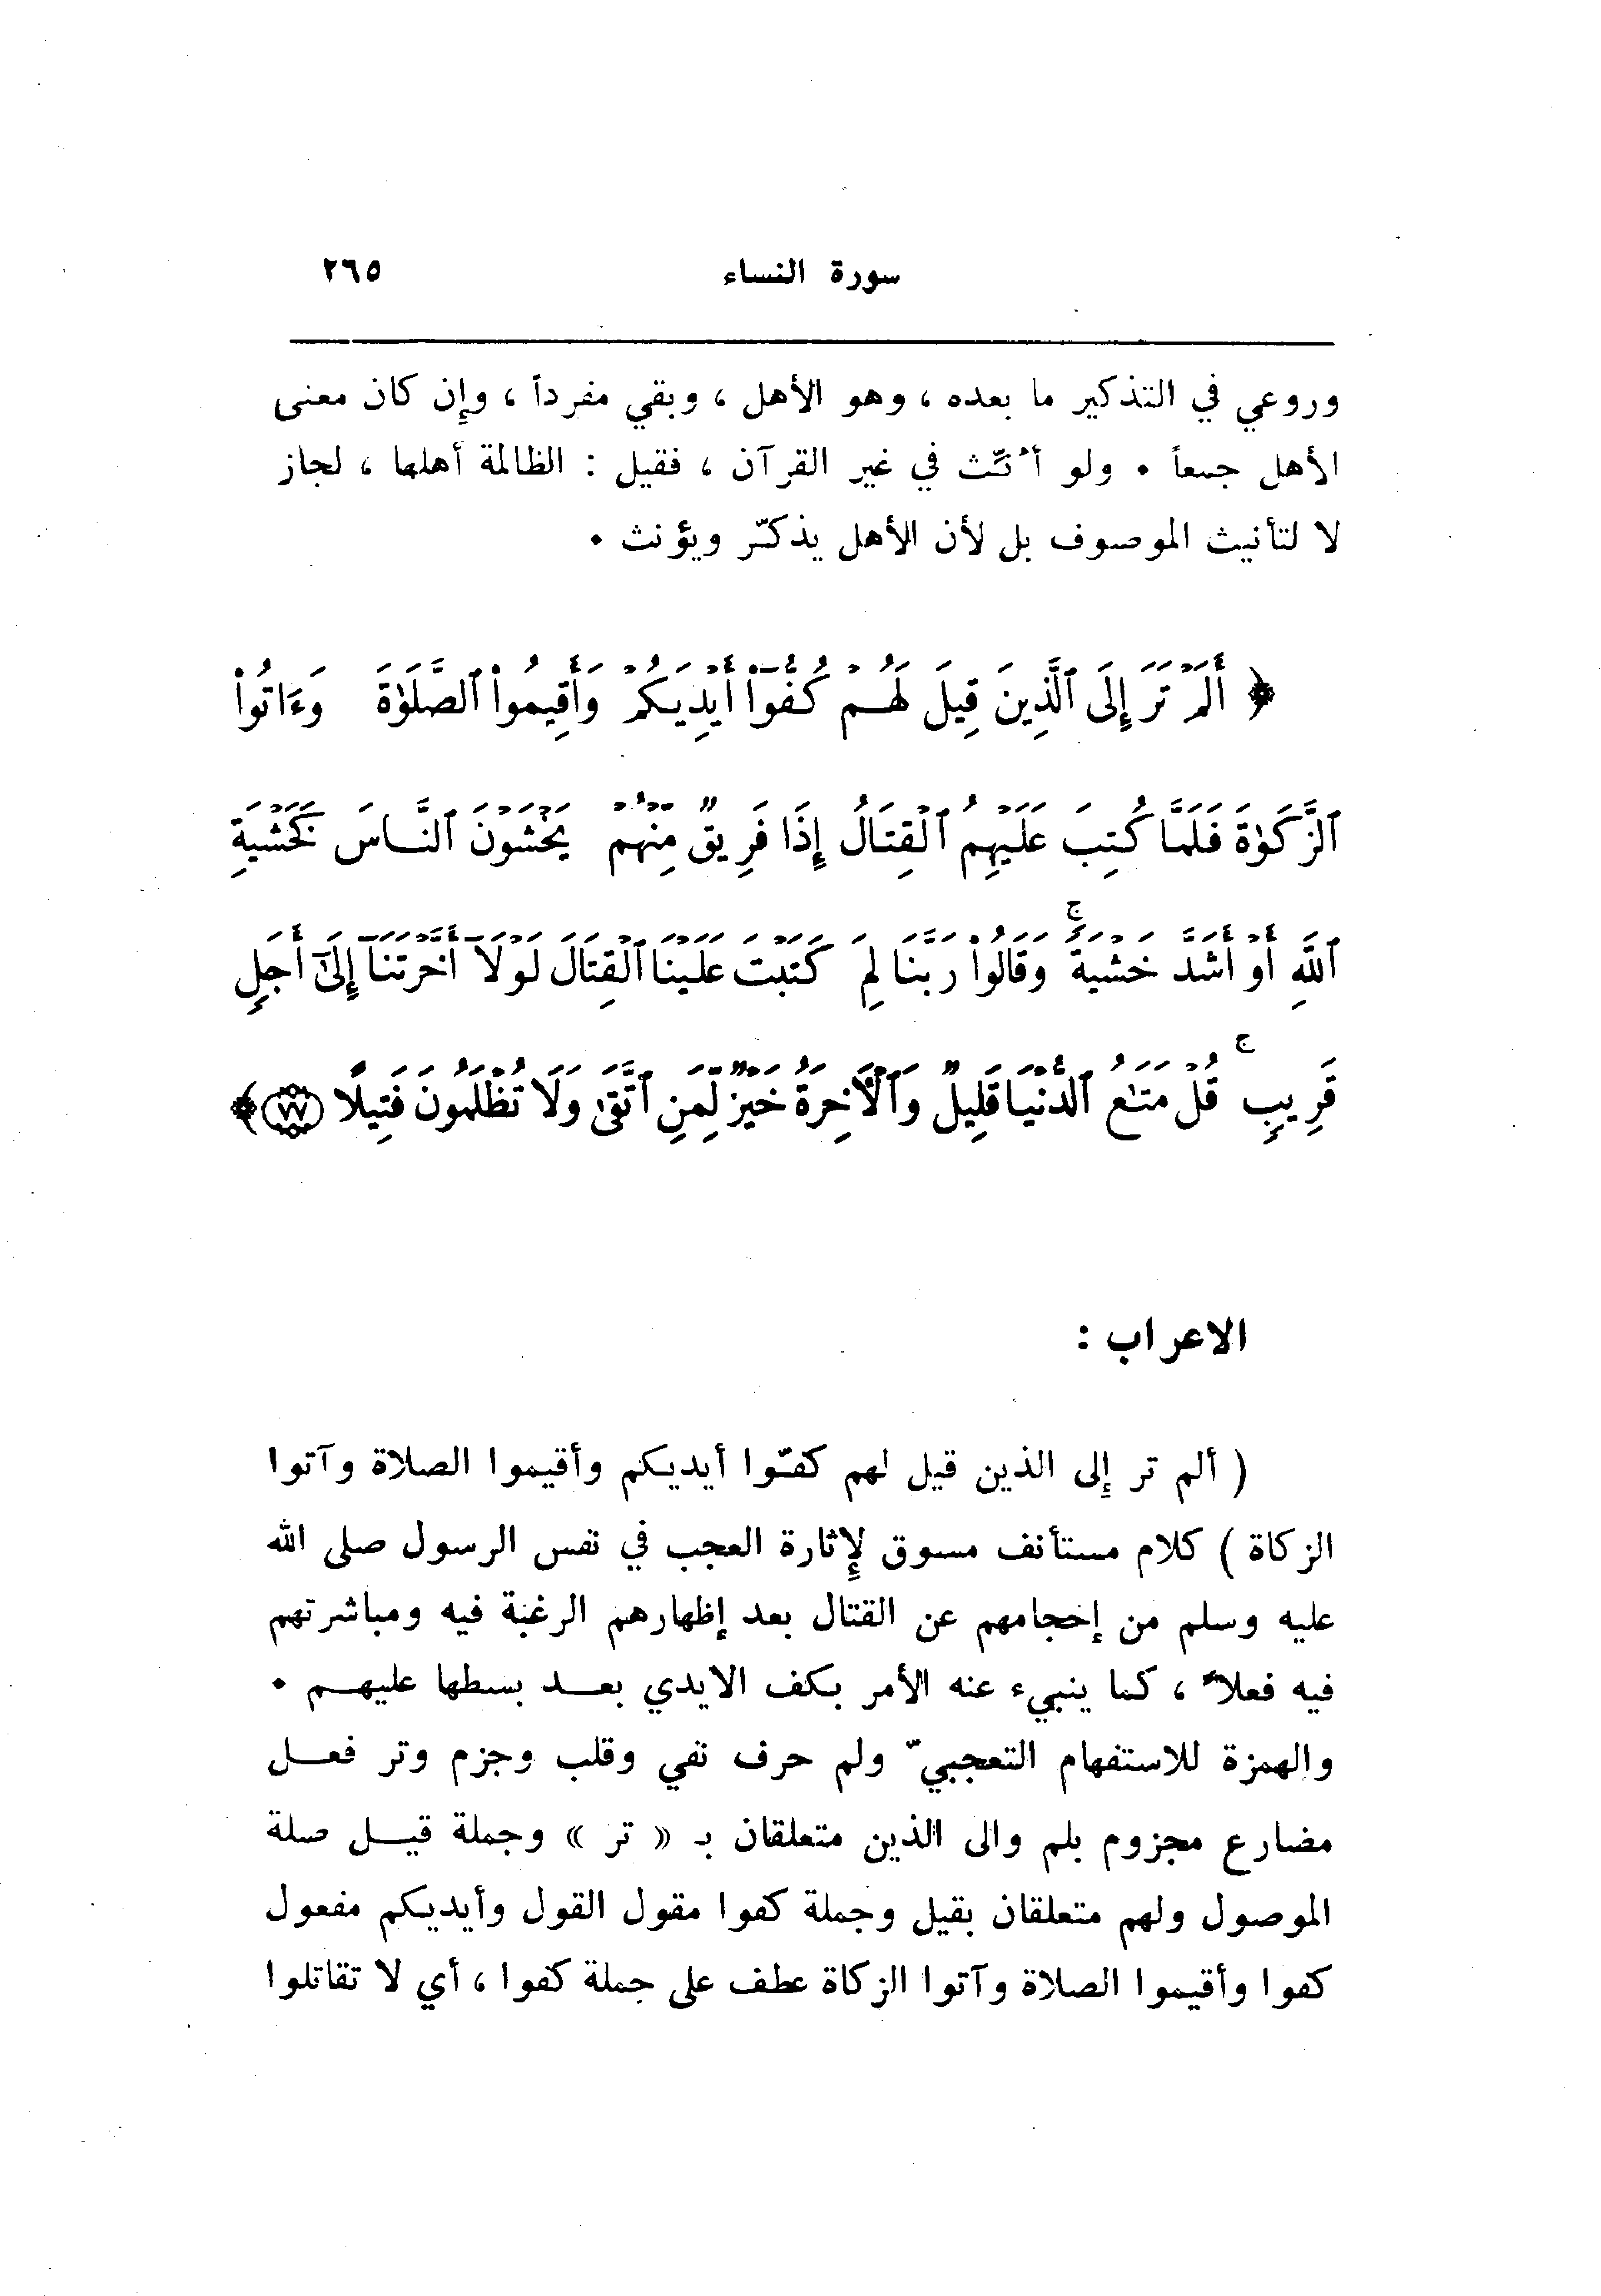 سورة النساء ٢٦٥
وروعي في التذكير ما بعده ، وهو الأهل ، وبقي مفرداً ، وإن كان معنى
الأهل جمعاً . ولو أُنِّث في غير القرآن ، فقيل : الظالمة أهلها ، لجاز
لا لتأنيث الموصوف بل لأن الأهل يذكّر ويؤنث .
﴿ أَلَمْ تَرَ إِلَى ٱلَّذِينَ قِيلَ لَهُمْ كُفُّوٓا۟ أَيْدِيَكُمْ وَأَقِيمُوا۟ ٱلصَّلَوٰةَ وَءَاتُوا۟
ٱلزَّكَوٰةَ فَلَمَّا كُتِبَ عَلَيْهِمُ ٱلْقِتَالُ إِذَا فَرِيقٌ مِّنْهُمْ يَخْشَوْنَ ٱلنَّاسَ كَخَشْيَةِ
ٱللَّهِ أَوْ أَشَدَّ خَشْيَةً ۚ وَقَالُوا۟ رَبَّنَا لِمَ كَتَبْتَ عَلَيْنَا ٱلْقِتَالَ لَوْلَآ أَخَّرْتَنَآ إِلَىٰٓ أَجَلٍ
قَرِيبٍ ۚ قُلْ مَتَـٰعُ ٱلدُّنْيَا قَلِيلٌ وَٱلْـَٔاخِرَةُ خَيْرٌ لِّمَنِ ٱتَّقَىٰ وَلَا تُظْلَمُونَ فَتِيلًا ٧٧ ﴾
الاعراب :
( ألم تر إلى الذين قيل لهم كفّوا أيديكم وأقيموا الصلاة وآتوا
الزكاة ) كلام مستأنف مسوق لإِثارة العجب في نفس الرسول صلى الله
عليه وسلم من إحجامهم عن القتال بعد إظهارهم الرغبة فيه ومباشرتهم
فيه فعلاً ، كما ينبيء عنه الأمر بكف الايدي بعد بسطها عليهم .
والهمزة للاستفهام التعجبيّ ولم حرف نفي وقلب وجزم وتر فعل
مضارع مجزوم بلم والى الذين متعلقان بـ « تر » وجملة قيل صلة
الموصول ولهم متعلقان بقيل وجملة كفوا مقول القول وأيديكم مفعول
كفوا وأقيموا الصلاة وآتوا الزكاة عطف على جملة كفوا ، أي لا تقاتلوا